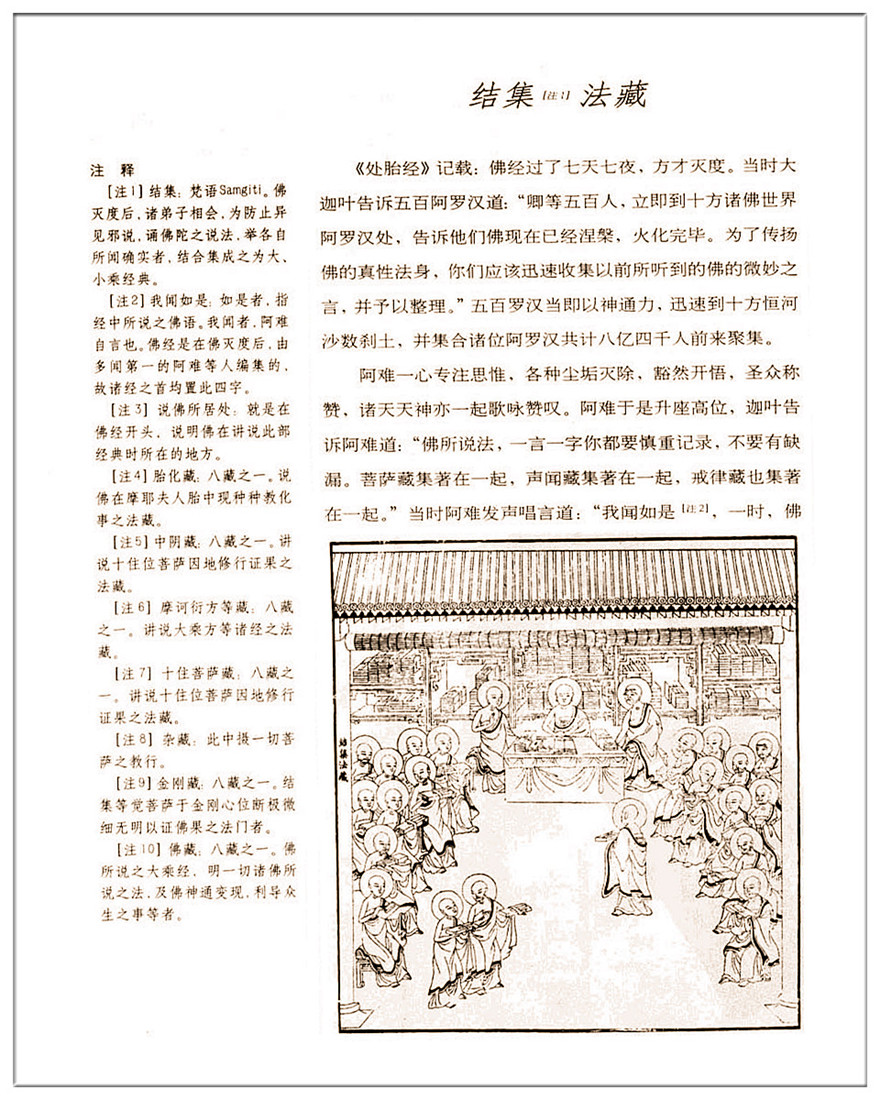 结集[注1]法藏
注 释
[注1]结集：梵语Samgiti。佛
灭度后，诸弟子相会，为防止异
见邪说，诵佛陀之说法，举各自
所闻确实者，结合集成之为大、
小乘经典。
[注2]我闻如是：如是者，指
经中所说之佛语。我闻者，阿难
自言也。佛经是在佛灭度后，由
多闻第一的阿难等人编集的，
故诸经之首均置此四字。
[注3]说佛所居处：就是在
佛经开头，说明佛在讲说此部
经典时所在的地方。
[注4]胎化藏：八藏之一。说
佛在摩耶夫人胎中现种种教化
事之法藏。
[注5]中阴藏：八藏之一。讲
说十住位菩萨因地修行证果之
法藏。
[注6]摩诃衍方等藏：八藏
之一。讲说大乘方等诸经之法
藏。
[注7]十住菩萨藏：八藏之
一。讲说十住位菩萨因地修行
证果之法藏。
[注8]杂藏：此中摄一切菩
萨之教行。
[注9]金刚藏：八藏之一。结
集等觉菩萨于金刚心位断极微
细无明以证佛果之法门者。
[注10]佛藏：八藏之一。佛
所说之大乘经，明一切诸佛所
说之法，及佛神通变现，利导众
生之事等者。
《处胎经》记载：佛经过了七天七夜，方才灭度。当时大
迦叶告诉五百阿罗汉道：“卿等五百人，立即到十方诸佛世界
阿罗汉处，告诉他们佛现在已经涅槃，火化完毕。为了传扬
佛的真性法身，你们应该迅速收集以前所听到的佛的微妙之
言，并予以整理。”五百罗汉当即以神通力，迅速到十方恒河
沙数刹土，并集合诸位阿罗汉共计八亿四千人前来聚集。
阿难一心专注思惟，各种尘垢灭除，豁然开悟，圣众称
赞，诸天天神亦一起歌咏赞叹。阿难于是升座高位，迦叶告
诉阿难道：“佛所说法，一言一字你都要慎重记录，不要有缺
漏。菩萨藏集著在一起，声闻藏集著在一起，戒律藏也集著
在一起。”当时阿难发声唱言道：“我闻如是[注2]，一时，佛
结集法藏